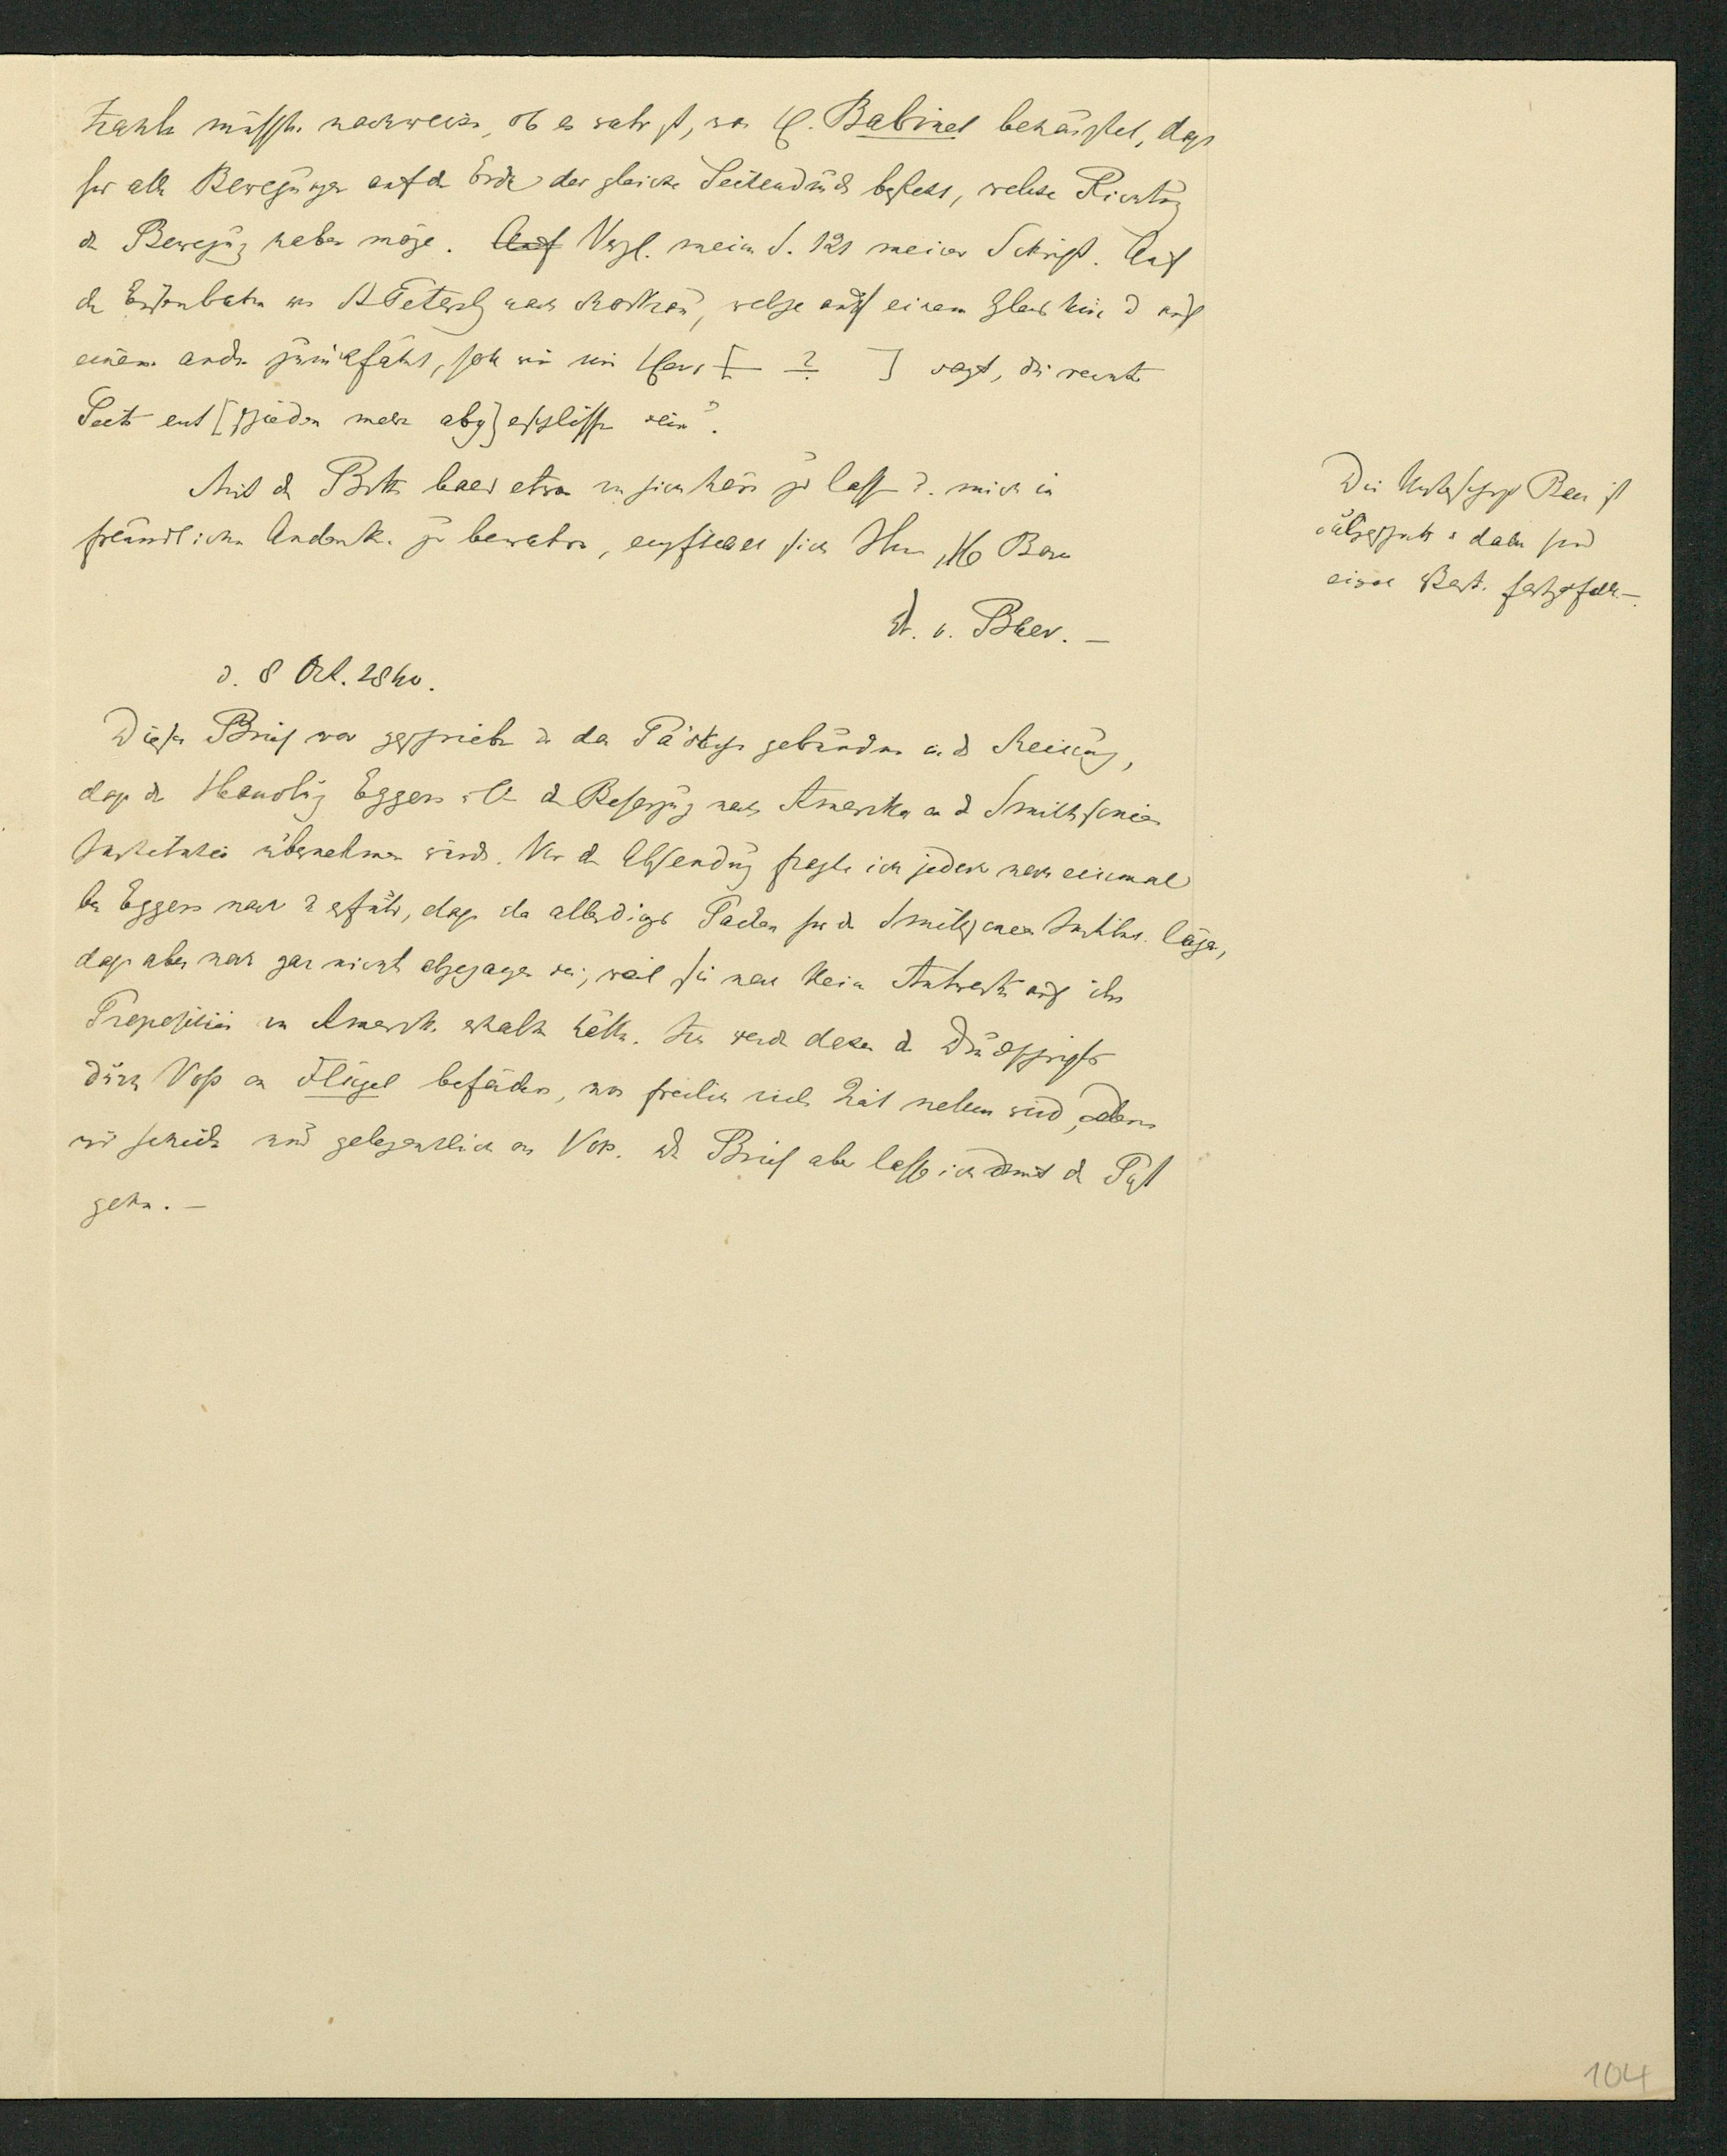 müsste nachweisen, ob es wahr ist, was H. Babinet behauptet, dass
für alle Bewegungen auf der Erde der gleiche Seitendruck besteht, welche Richtung
die Bewegung haben möge. Auf Vergl. meine S. 121 meiner Schrift. Auf
der Eisenbahn von St Petersb nach Moskau, welche auf einem Gleis hin u auf
einem andern zurückfährt, soll wie mir Herr [ ? ] sagt, die rechte
Seite ent[schieden mehr abg]eschliffen sein?.
Mit der Bitte bald etwas von sich hören zu lassen u. mich in
freundlichem Andenken zu bewahren, empfiehlt sich Ihnen
v. Baer. –
d. 8 Oct. 1860.
Dieser Brief war geschrieben u das Päckchen gebunden in d Meinung,
dass die Handlung Eggers & C die Besorgung nach Amerika an d Smithsonian
Institution übernehmen würde. Vor der Absendung fragte ich jedoch noch einmal
bei Eggers nach u erfuhr, dass da allerdings Packen für die Smithsonian Institut. lägen,
dass aber noch gar nichts abgegangen sei, weil sie noch keine Antwort auf ihre
Proposition von Amerika erhalten hätten. Ich werde daher die Druckschriften
durch Voss an Flügel befördern, was freilich viel Zeit nehmen wird,
wir schicken nur gelegentlich an Voss. Den Brief aber lasse ich mit der Post
gehn. –
Die Unterschrift Baer ist
ausgeschnitten u daher sind
einige Worte fortgefallen –.
104